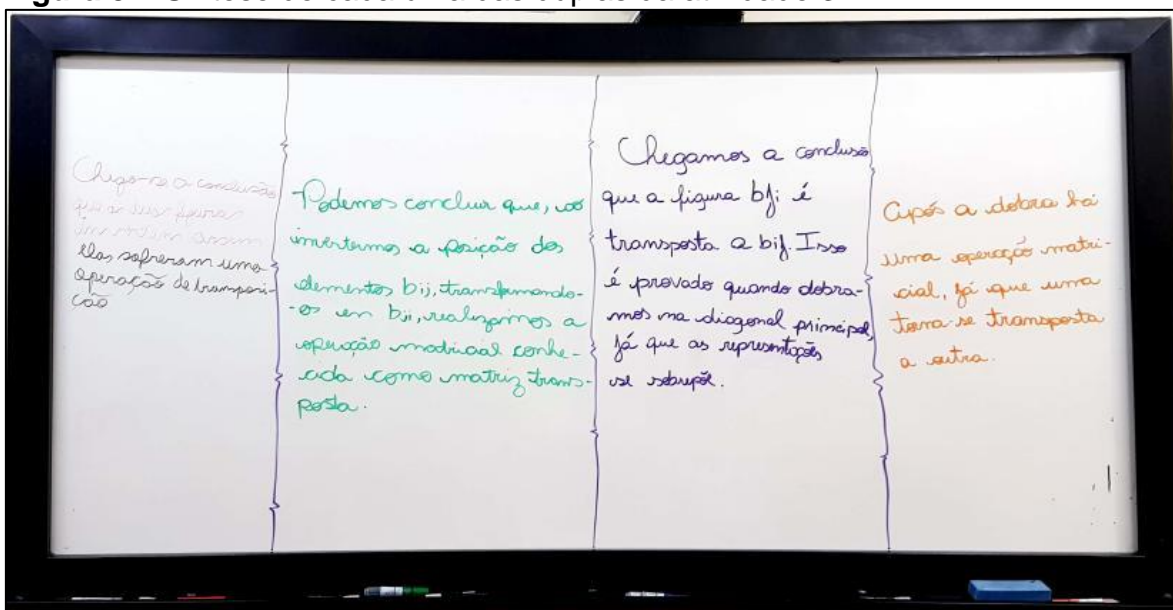 Chega-se a conclusão
que as
assim
elas sofreram uma
operação de transposi-
ção
Podemos concluir que, ao
invertermos a posição dos
elementos bij, transformando-
-os em bji, realizamos a
operação matricial conhe-
cida como matriz trans-
posta.
Chegamos a conclusão
que a figura bji é
transposta a bij. Isso
é provado quando dobra-
mos na diagonal principal,
já que as representações
se sobrepõe.
Após a dobra há
uma operação matri-
cial, já que uma
torna-se transposta
a outra.